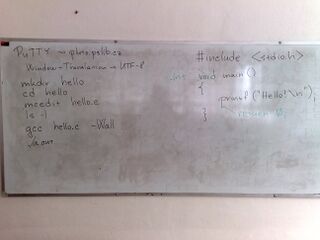 PuTTY → phro.pslib.cz
Window → Translation → UTF-8
mkdir hello
cd hello
mcedit hello.c
ls -l
gcc hello.c -Wall
./a.out
#include <stdio.h>
int void main()
{
printf("Hello!\n");
return 0;
}